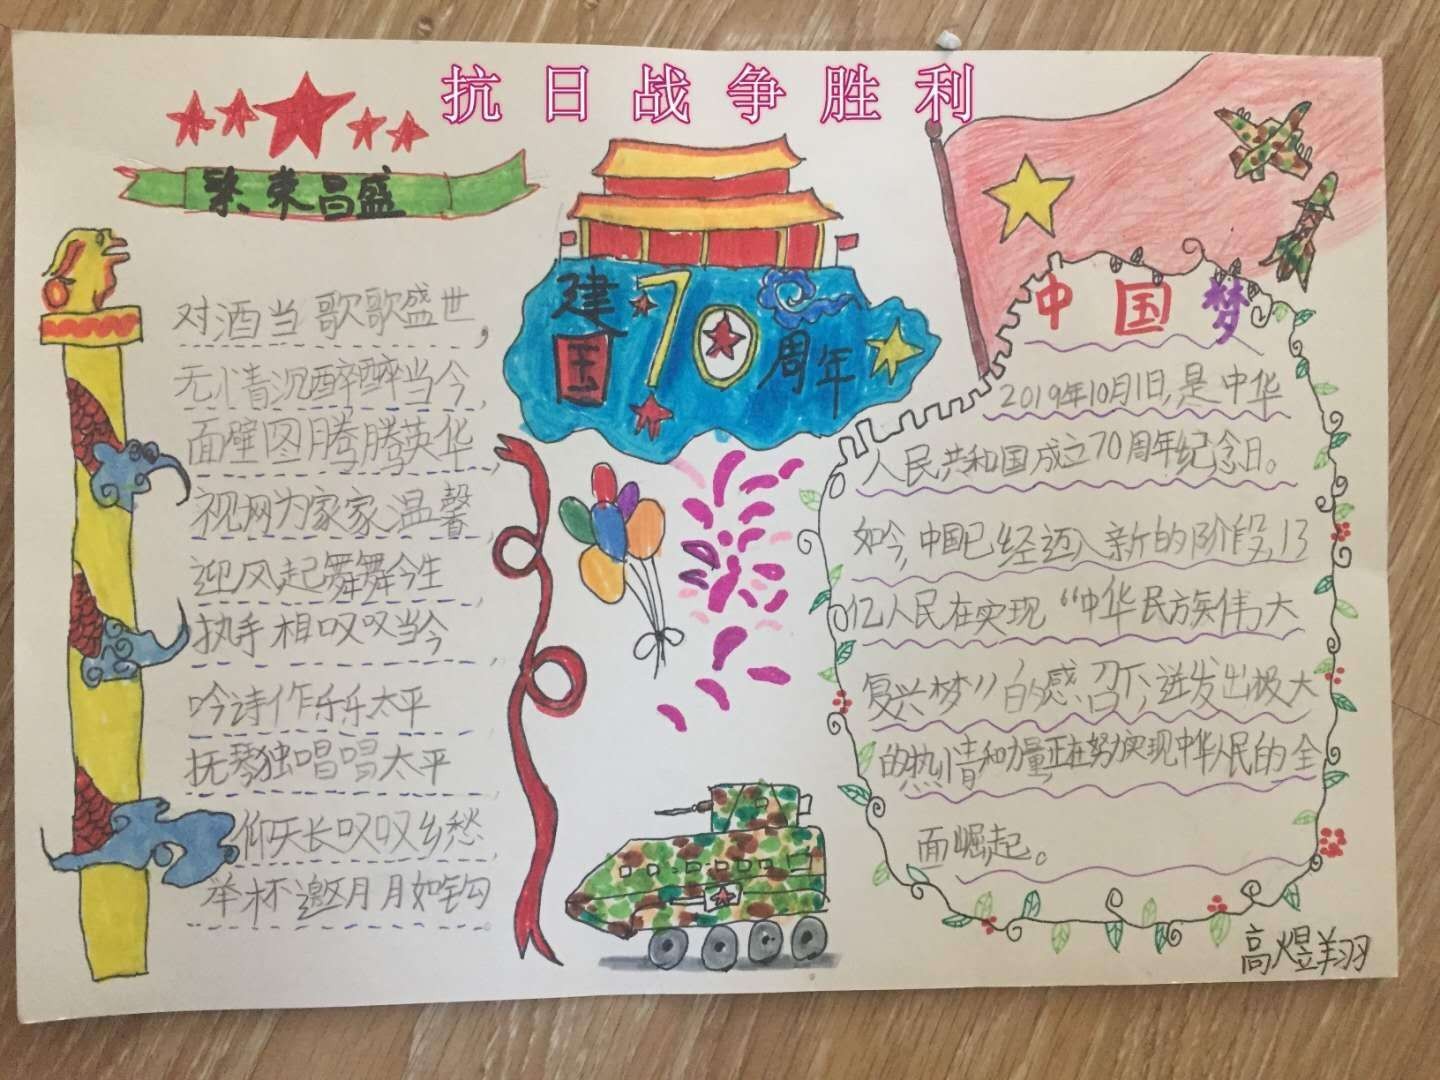 抗日战争胜利
繁荣昌盛
对酒当歌歌盛世,
无情沉醉醉当今,
面壁图腾腾英华,
视网为家家温馨,
迎风起舞舞今生,
执手相叹叹当今
吟诗作乐乐太平
抚琴独唱唱太平
仰天长叹叹乡愁,
举杯邀月月如钩
建国70周年
中国梦
2019年10月1日,是中华
人民共和国成立70周年纪念日。
如今,中国已经迈入新的阶段,13
亿人民在实现“中华民族伟大
复兴梦”的感召下,迸发出极大
的热情和力量正在努力实现中华人民的全
面崛起。
高煜翔